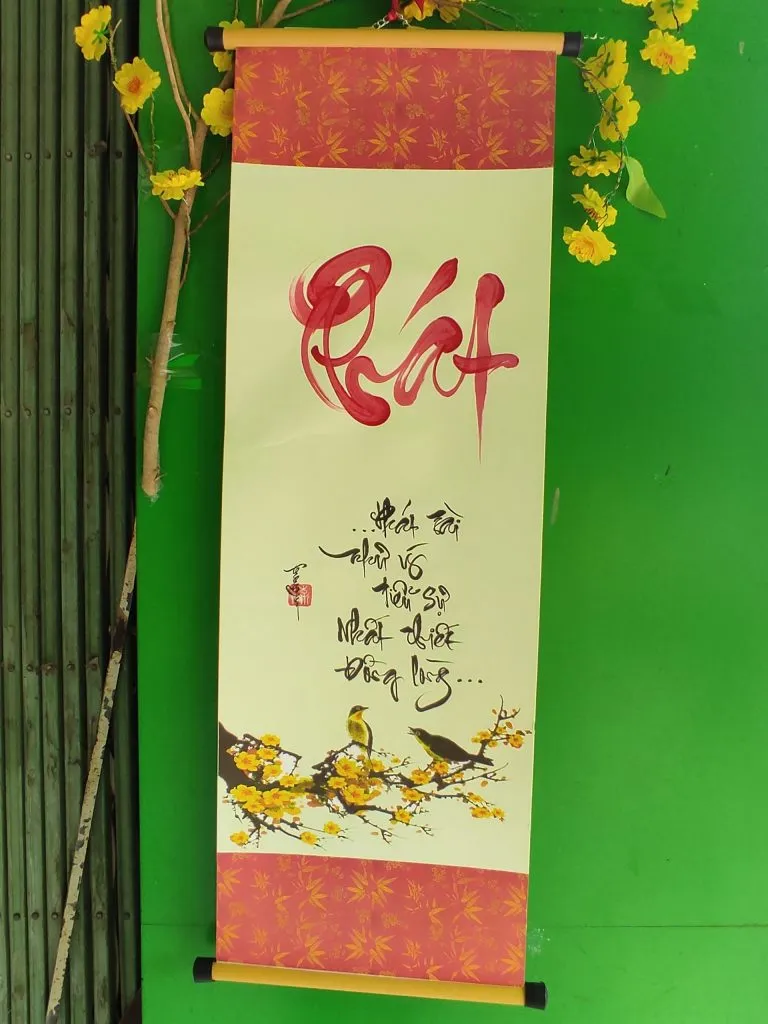 Phát
...Phát tài
Như ý
tiểu sự
Nhất thiết
Đồng lòng...